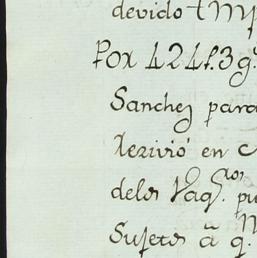 devido tmp
Por 424f.3g.
Sanchez para
Rezivió en
delos Vaqs.ros pu
Sujetos ã q.